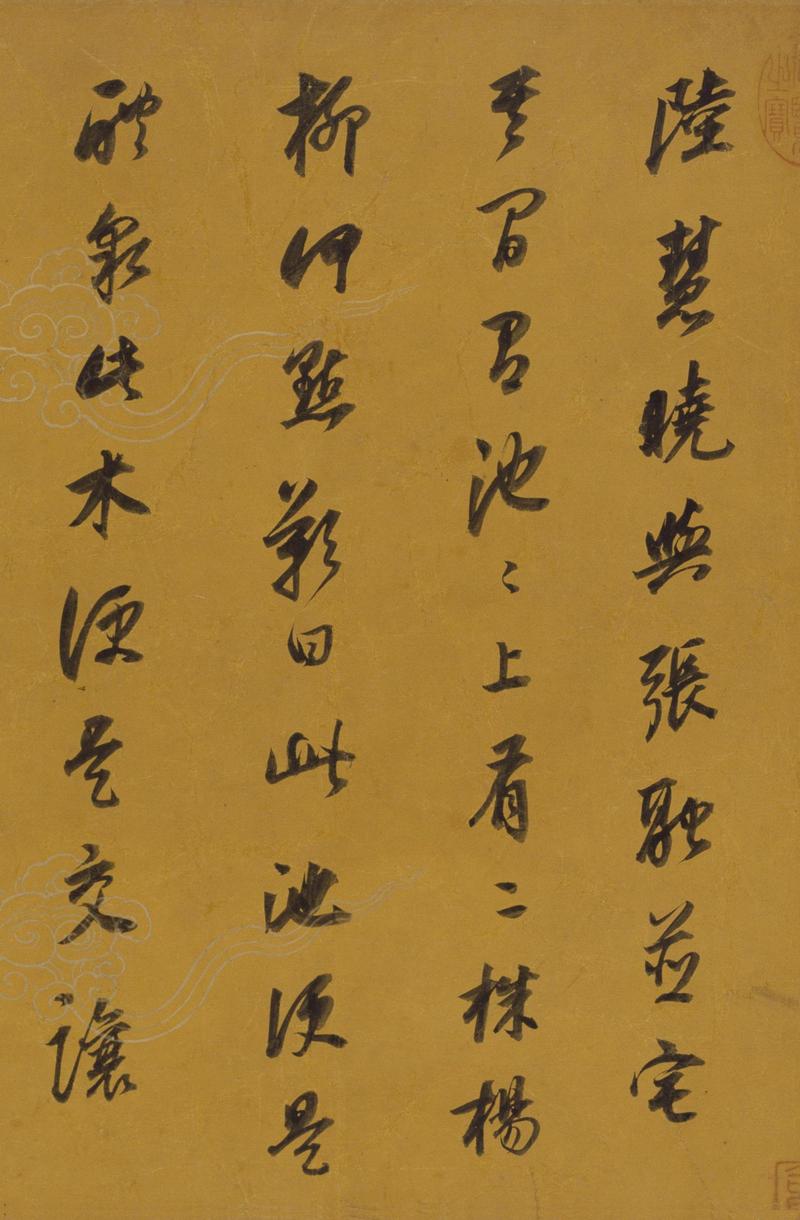 陸慧曉與張融並宅
其間有池〻上有二株楊
柳何點歎曰此池便是
醴泉此木便是交讓
之寶